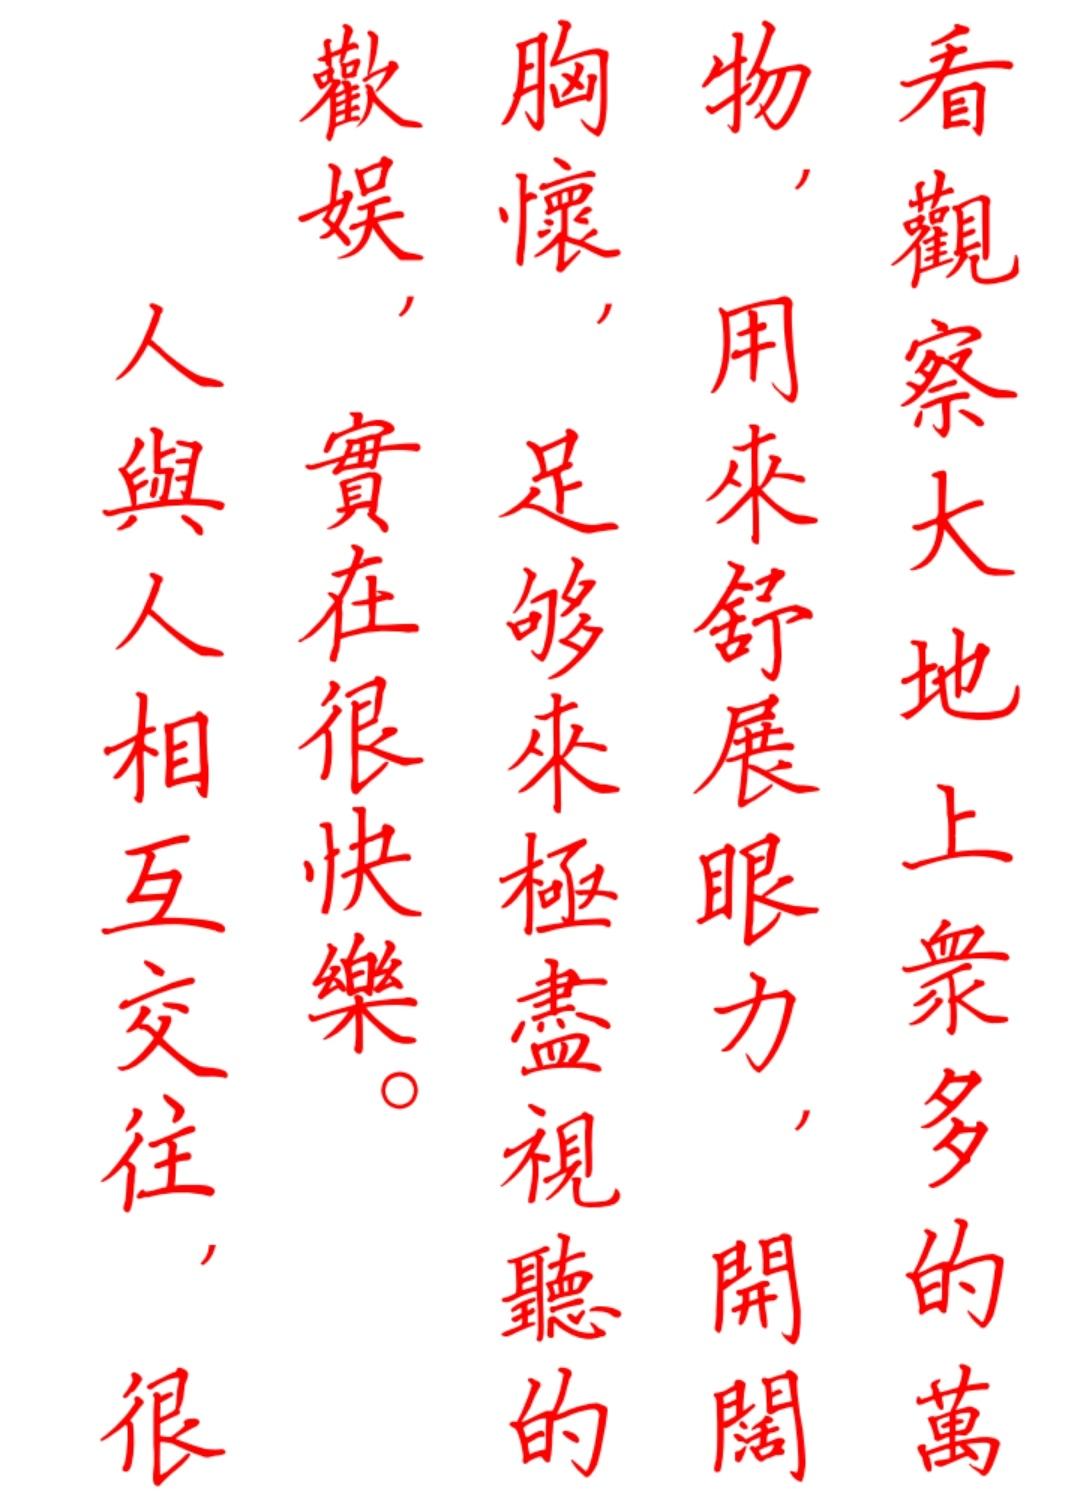 看觀察大地上衆多的萬
物，用來舒展眼力，開闊
胸懷，足够來極盡視聽的
歡娱，實在很快樂。
人與人相互交往，很